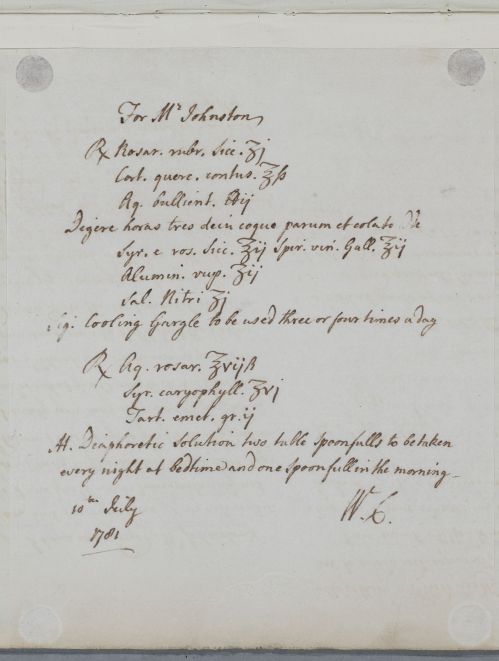 For Mr Johnston
℞ Rosar. rubr. sicc. ℥j
Cort. querc. contus. ℥ß
Aq. bullient. ℔ij
Digere horas tres dein coque parum et colato
Syr. e ros. sicc. ℥ij Spir. vin. Gall. ℥ij
Alumin. rup. ʒij
Sal. Nitri ʒj
Sig. Cooling Gargle to be used three or four times a day
℞ Aq. rosar. ℥vijß
Syr. caryophyll. ʒvj
Tart. emet. gr. ij
M. Diaphoretic Solution two table spoonfulls to be taken
every night at bedtime and one spoonfull in the morning
10th July
1781
W. C.